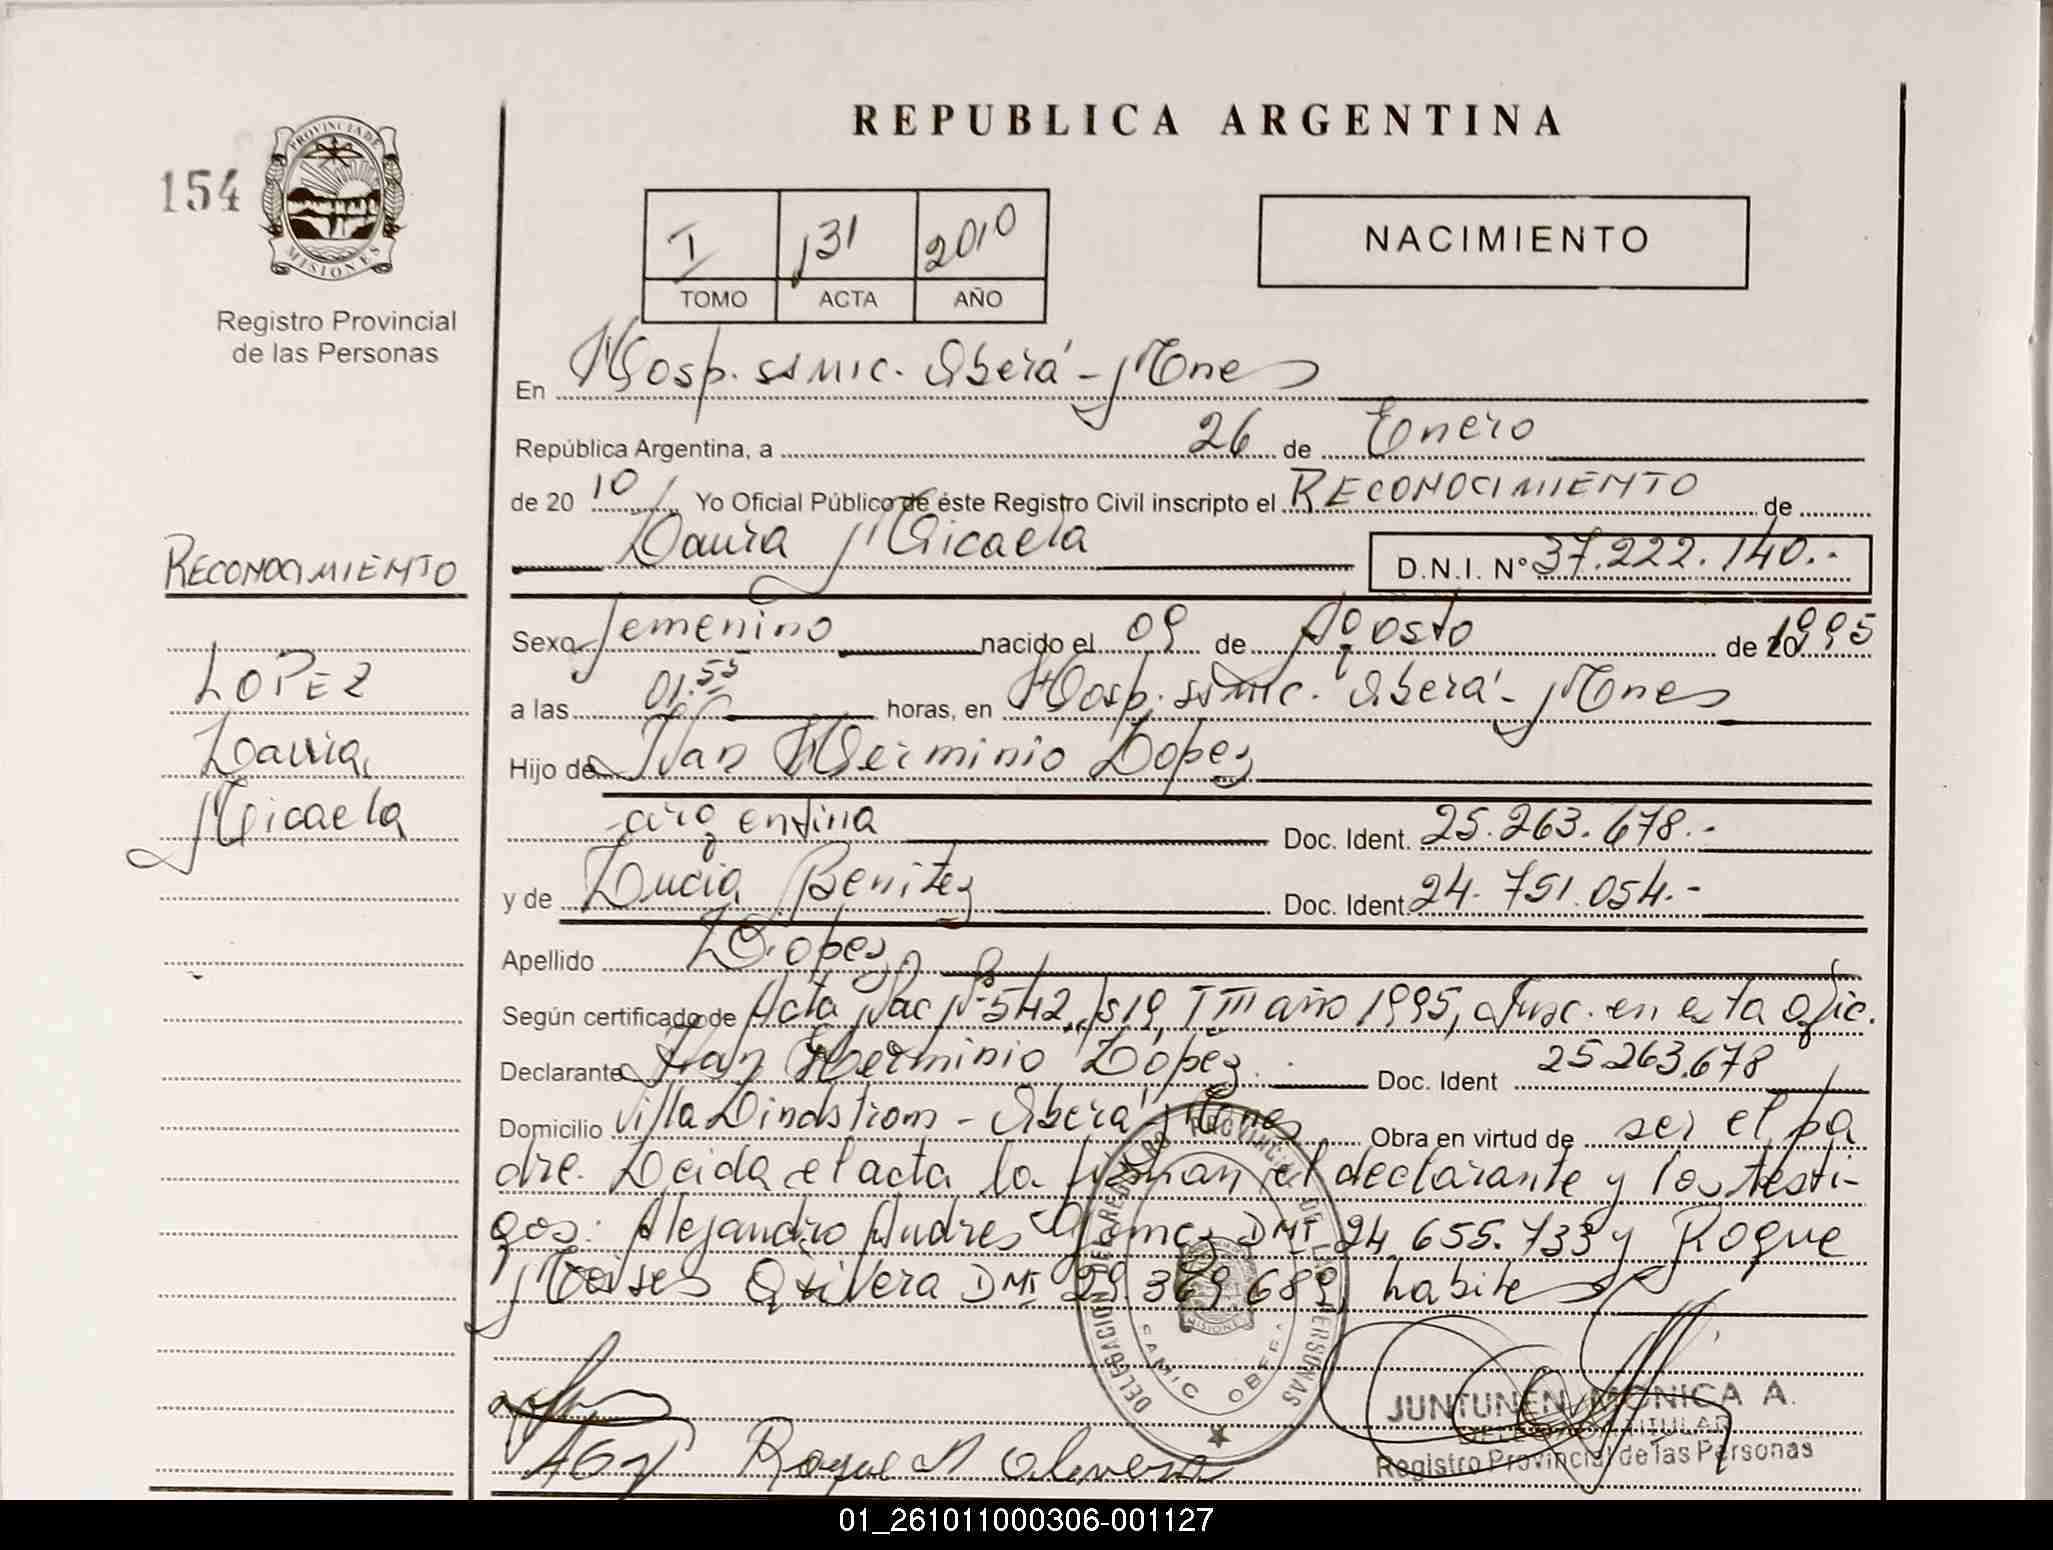 REPUBLICA ARGENTINA
154
PROVINCIA DE
MISIONES
Registro Provincial
de las Personas
I 131 2010
TOMO ACTA AÑO
NACIMIENTO
En Hosp. SAMIC. Oberá - Mnes
República Argentina, a 26 de Enero
de 20 10 Yo Oficial Público de éste Registro Civil inscripto el RECONOCIMIENTO de
Laura Micaela D.N.I. Nº 37.222.140.-
RECONOCIMIENTO
LOPEZ
Laura
Micaela
Sexo femenino nacido el 09 de Agosto de 20 1995
a las 01.55 horas, en Hosp. SAMIC. Oberá - Mnes
Hijo de Ivan Herminio Lopez
argentina Doc. Ident. 25.263.678.-
y de Lucia Benitez Doc. Ident. 24.751.054.-
Apellido Lopez
Según certificado de Acta Nac Nº 542, fs 19, T III año 1995, Insc. en esta Ofic.
Declarante Ivan Herminio López Doc. Ident 25.263.678
Domicilio Villa Lindstrom - Oberá, Mnes Obra en virtud de ser el pa
dre. Leida el acta la firman el declarante y los testi-
gos: Alejandro Andres Gomez DNI 24.655.733 y Roque
Moises Olivera DNI 29.369.689, habiles
DELEGACION DEL REGISTRO PROVINCIAL DE LAS PERSONAS
SAMIC OBERA
MISIONES
AGz
Roque M Olivera
JUNTUNEN MONICA A.
DELEGADA TITULAR
Registro Provincial de las Personas
01_261011000306-001127